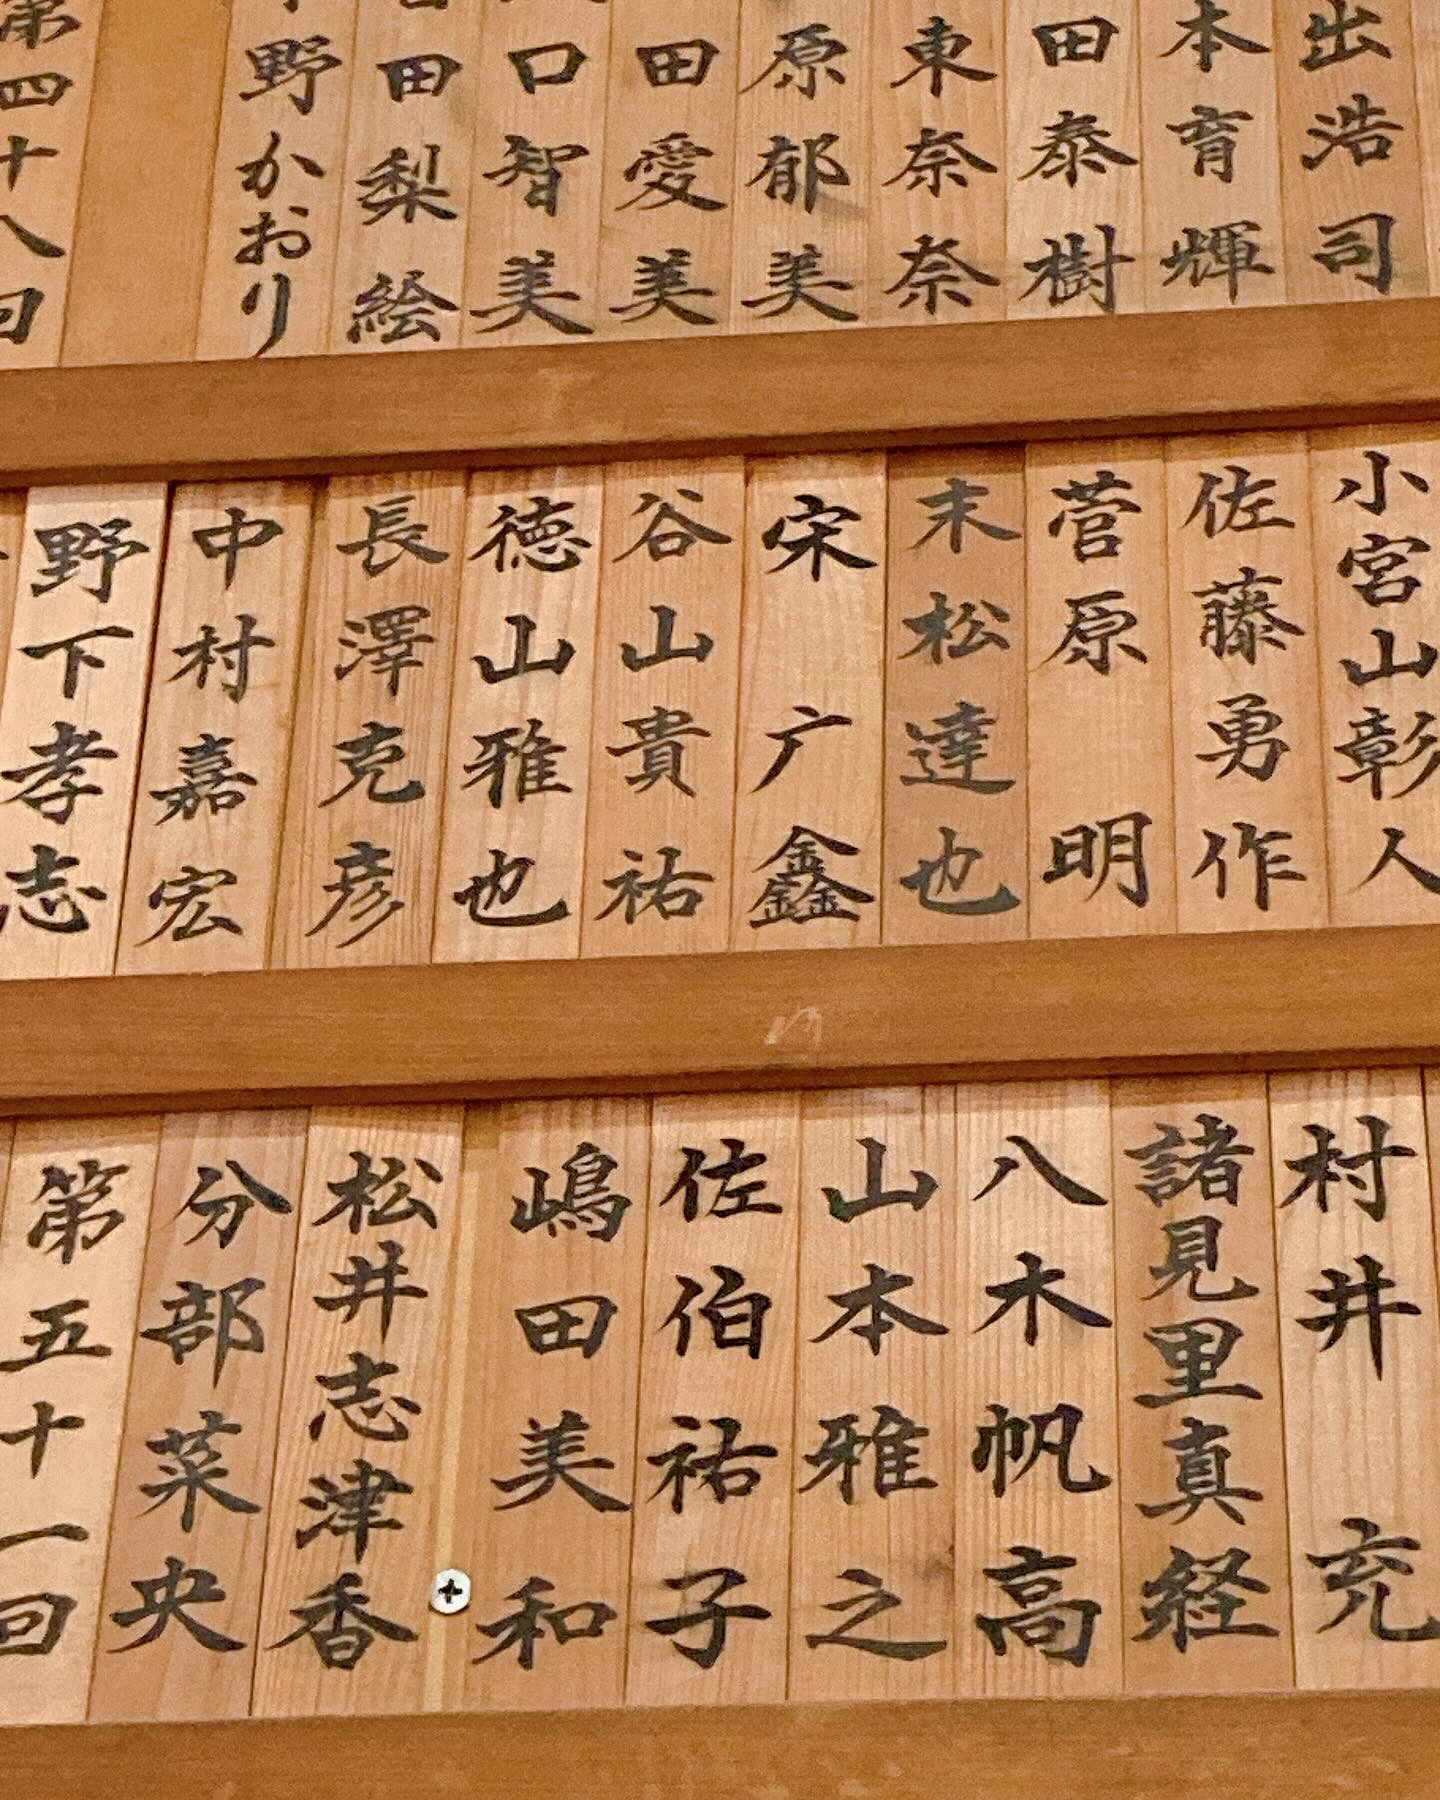 出浩司
本育輝
田泰樹
東奈奈
原郁美
田愛美
口智美
田梨絵
野かおり
第四十八回
小宮山彰人
佐藤勇作
菅原 明
末松達也
宋 广鑫
谷山貴祐
徳山雅也
長澤克彦
中村嘉宏
野下孝志
村井 充
諸見里真経
八木帆高
山本雅之
佐伯祐子
嶋田美和
松井志津香
分部菜央
第五十一回